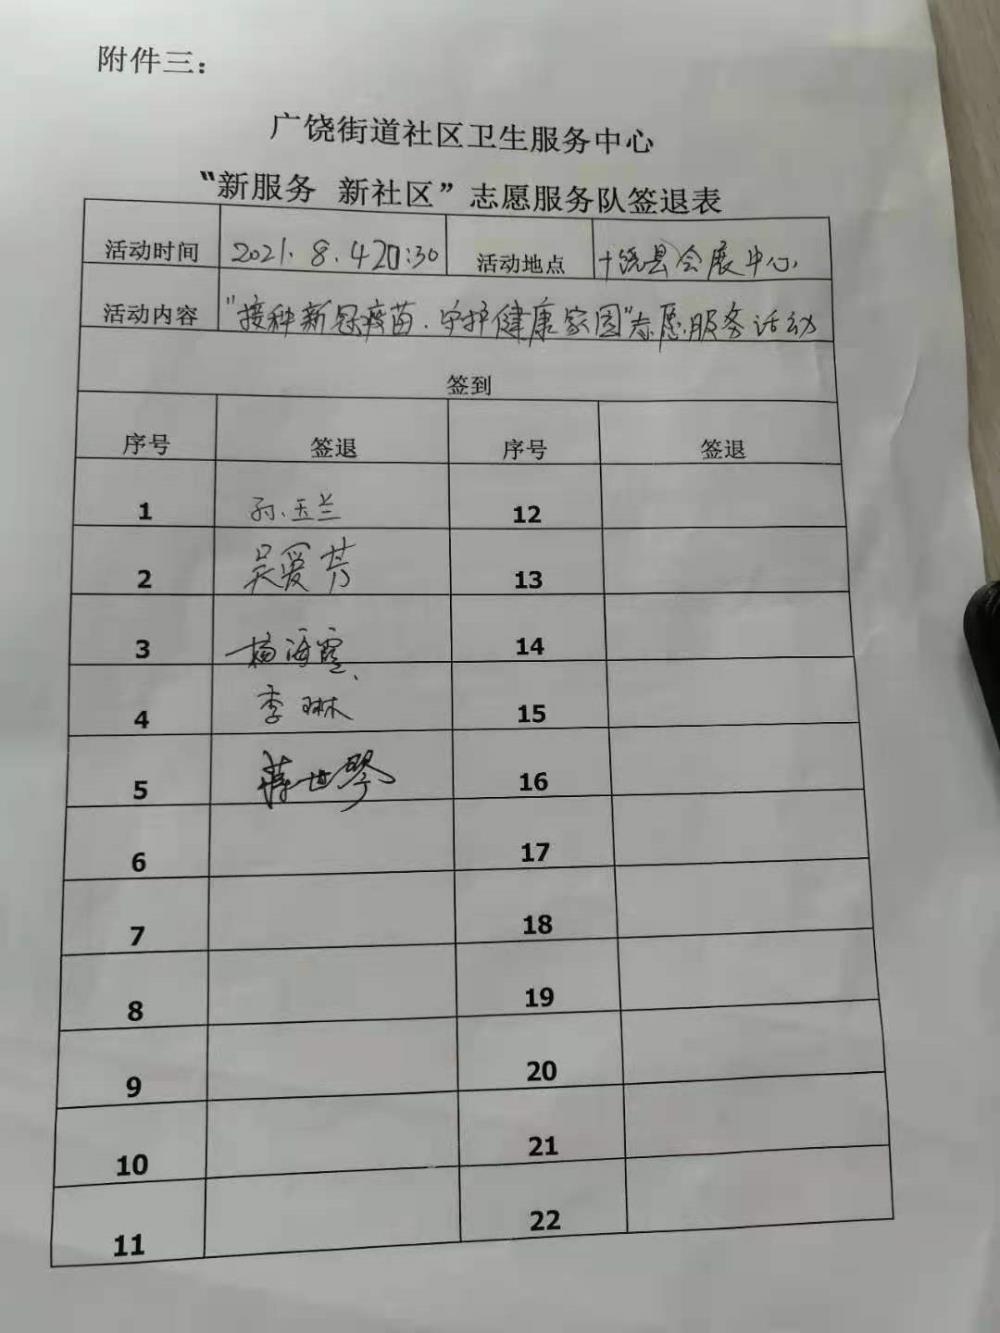 附件三：
广饶街道社区卫生服务中心
“新服务 新社区”志愿服务队签退表
活动时间 2021.8.4 20:30 活动地点 广饶县会展中心
活动内容 “接种新冠疫苗.守护健康家园”志愿服务活动
签到
序号 签退 序号 签退
1 孙玉兰 12
2 吴爱芳 13
3 杨海霞 14
4 李琳 15
5 蒋世琴 16
6 17
7 18
8 19
9 20
10 21
11 22